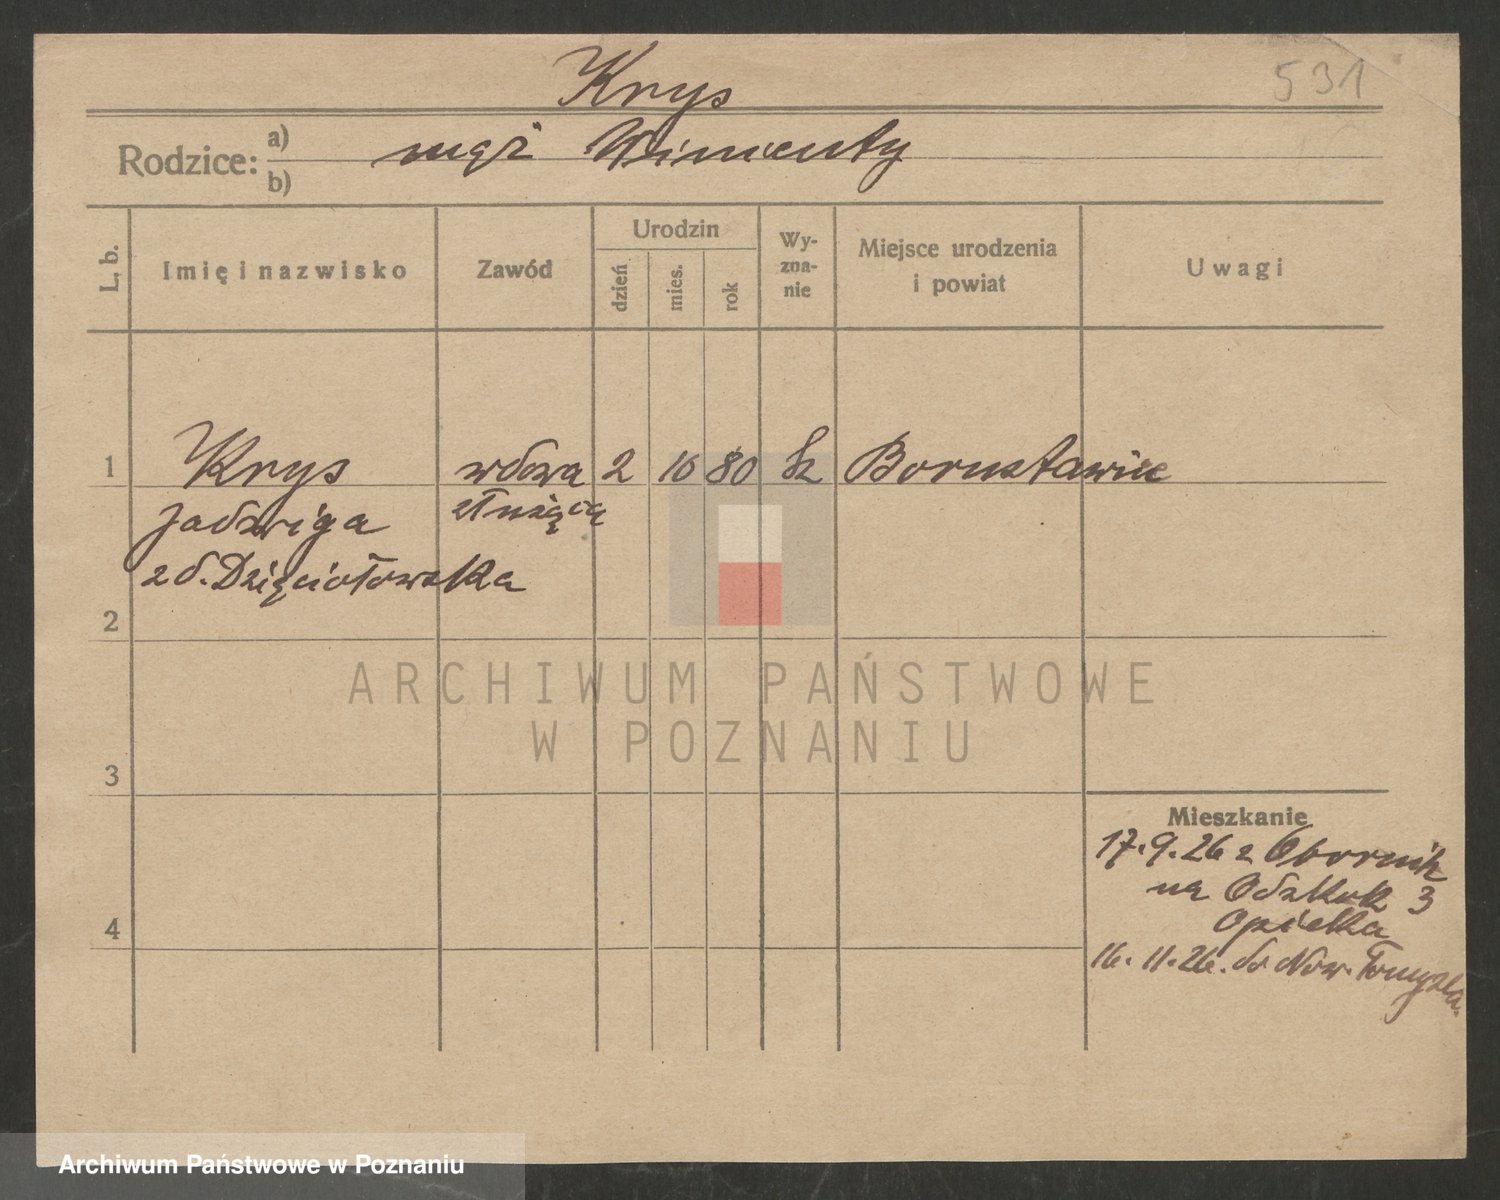 Krys
531
Rodzice: a) mąż Wincenty
b)
L. b.
Imię i nazwisko
Zawód
Urodzin
dzień
mies.
rok
Wy-
zna-
nie
Miejsce urodzenia
i powiat
Uwagi
1 Krys wdowa 2 10 80 rk
Jadwiga służąca
z d. Dzięciołowska
2
ARCHIWUM PAŃSTWOWE
W POZNANIU
3
Mieszkanie
17.9.26 z Obornik
na 3
Opielka
4
16.11.26. do Now. Tomyśla.
Archiwum Państwowe w Poznaniu